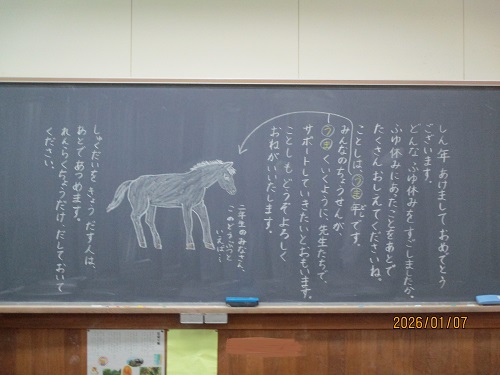 しん年 あけまして おめでとう
ございます。
どんな ふゆ休みを すごしましたか。
ふゆ休みに あったことを あとで
たくさん おしえてくださいね。
ことしは うま年です。
みんなの ちょうせんが、
うまくいくように、先生たちで、
サポートしていきたいと おもいます。
ことしも どうぞよろしく
おねがいいたします。
二年生のみなさん、
このどうぶつと
いえば…
しゅくだいを きょう だす人は、
あとで あつめます。
れんらくちょうだけ、だして、おいて
ください。
2026/01/07